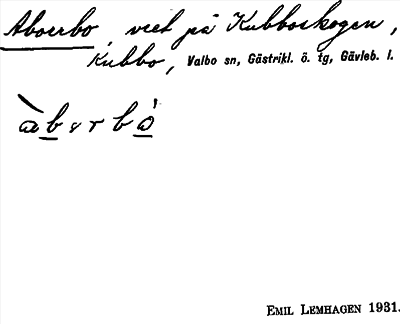 Aboerbo, vret på Kubboskogen,
Kubbo, Valbo sn, Gästrikl. ö. tg, Gävleb. l.
EMIL LEMHAGEN 1931.